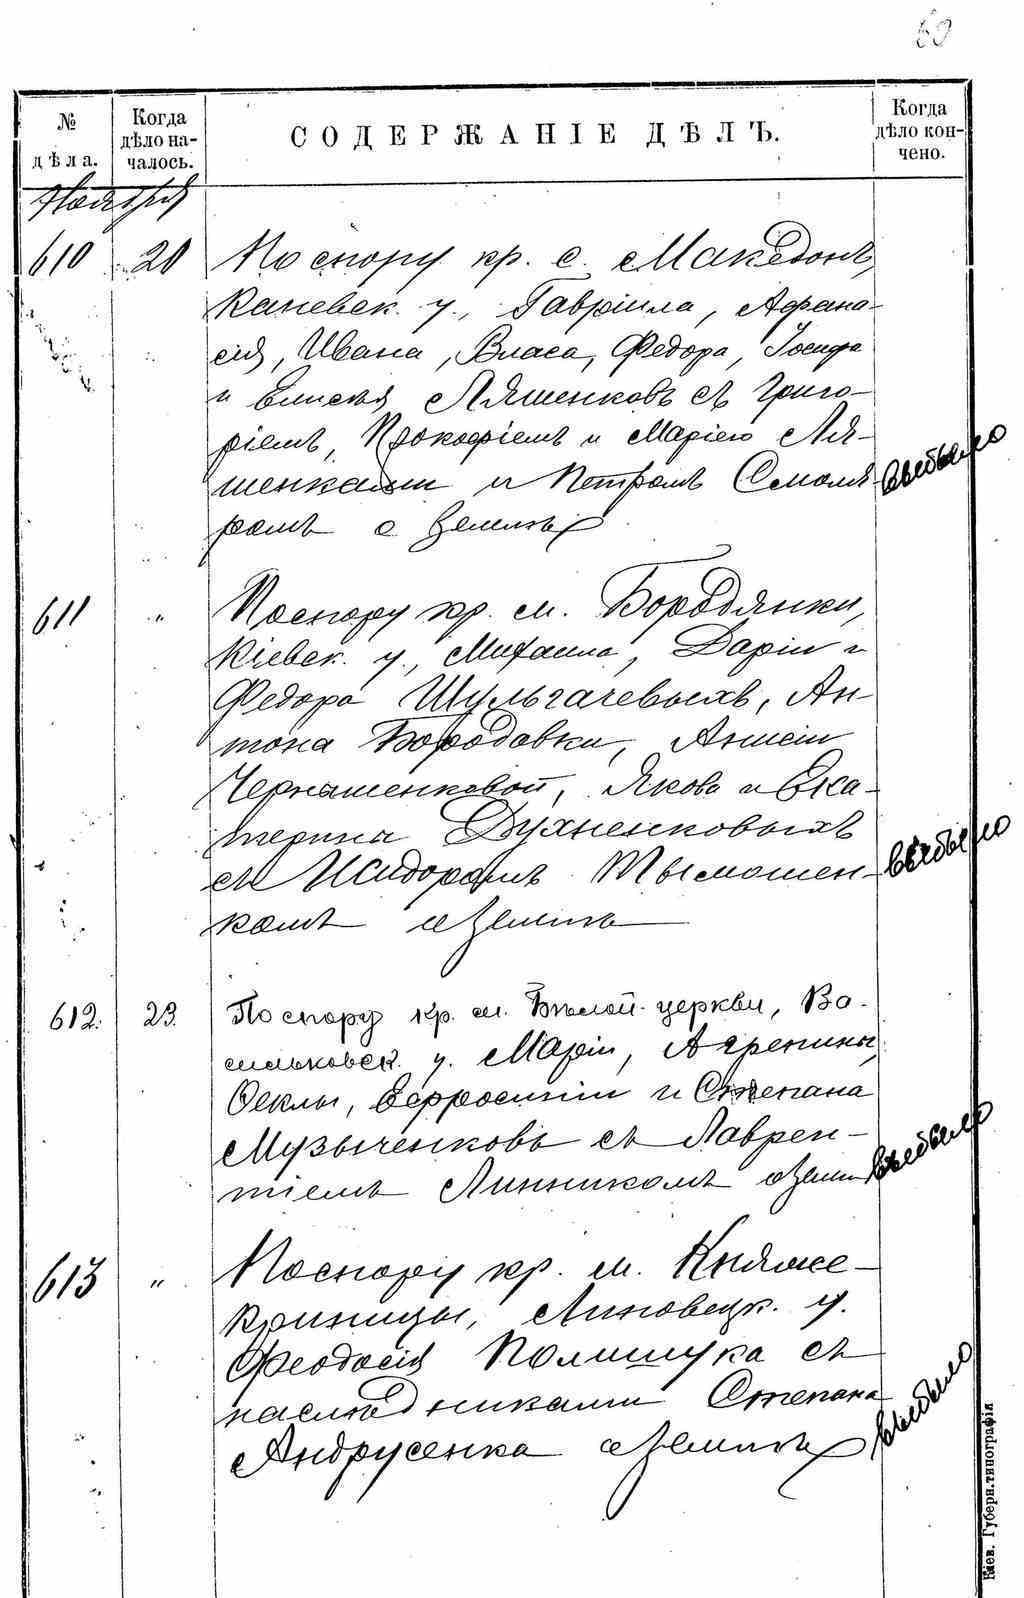 60
№
дѣла.
Когда
дѣло на-
чалось.
СОДЕРЖАНІЕ ДѢЛЪ.
Когда
дѣло кон-
чено.
Ноября
610 20 По спору кр. с. Македонъ,
Каневск. у., Гавріила, Афана-
сія, Ивана, Власа, Федора, Іосифа
и Елисея Ляшенковъ съ Григо-
ріемъ, Прокофіемъ и Маріею Ля-
шенками и Петромъ Смоля-
ромъ о землѣ
выбыло
611 " По спору кр. м. Бородянки,
Кіевск. у., Михаила, Даріи и
Федора Шульгачевыхъ, Ан-
тона Бородавки, Анисіи
Чернышенковой, Якова и Ека-
терины Духненковыхъ
съ Исидоромъ Тымошен-
комъ о землѣ
выбыло
612. 23. По спору кр. м. Бѣлой-церкви, Ва-
сильковск. у. Маріи, Агрепины,
Феклы, Ефросиніи и Степана
Музыченковъ съ Лаврен-
тіемъ Линникомъ о земл
выбыло
613 " По спору кр. м. Княже-
Криницы, Липовецк. у.
Феодосія Полищука съ
наслѣдниками Степана
Андрусенка о землѣ
выбыло
Кіев. Губерн. типографія